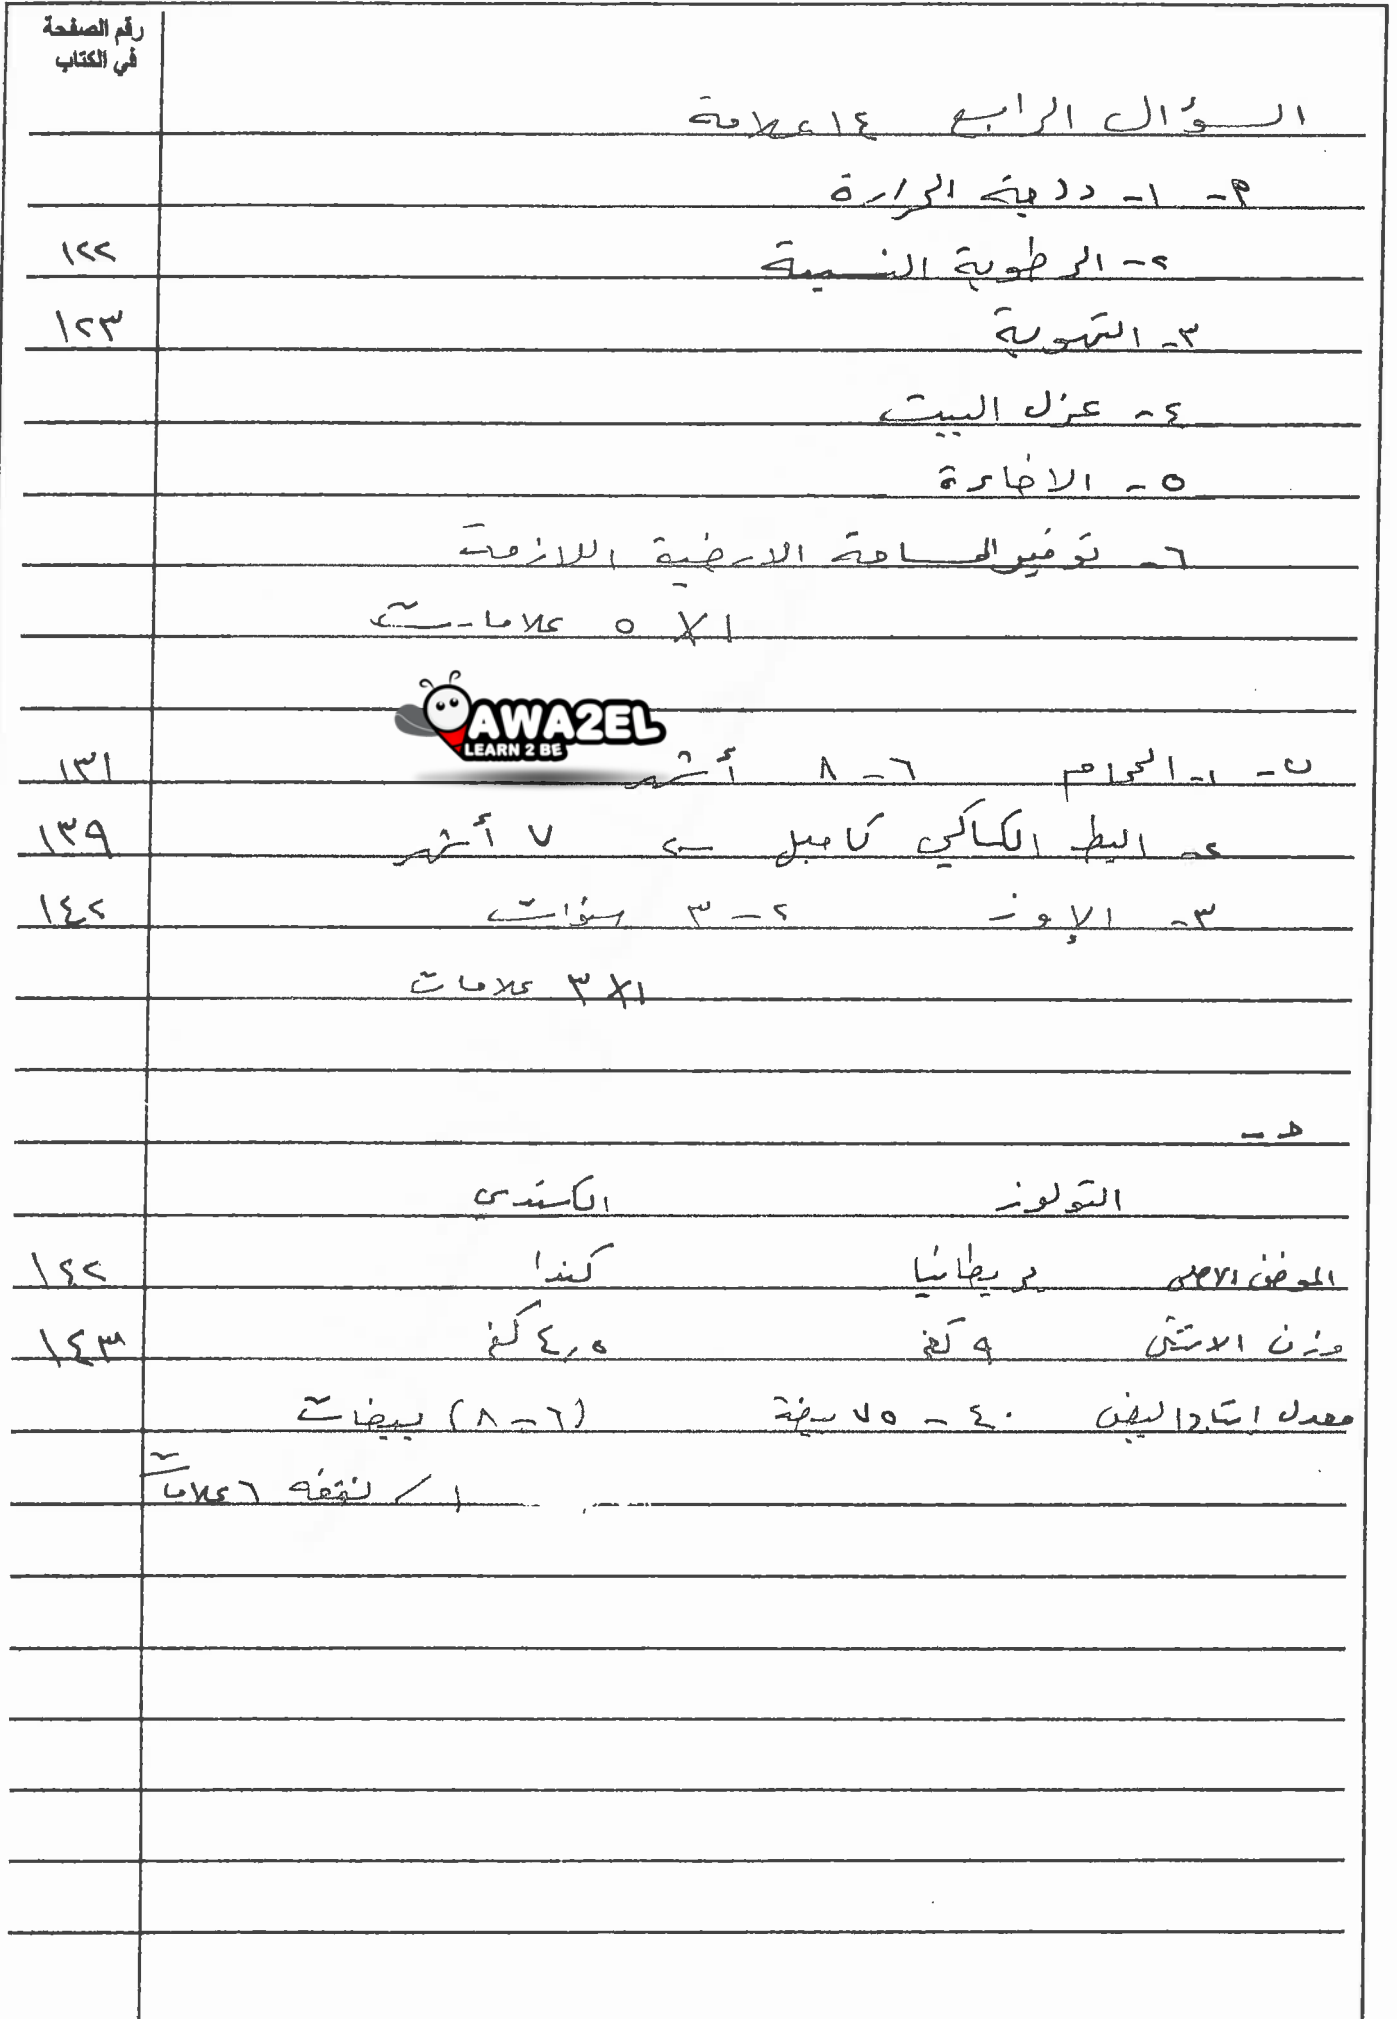 رقم الصفحة
في الكتاب
السؤال الرابع ١٤ علامة
٢- ١- درجة الحرارة
٢- الرطوبة النسبية ١٢٢
٣- التهوية ١٢٣
٤- عزل البيت
٥- الاضاءة
٦- توفير المساحة الارضية اللازمة
١ X ٥ علامات
AWA2EL
LEARN 2 BE
ب- ١- الحمام ٦ - ٨ أشهر ١٣١
٢- البط الكاكي كامبل ← ٧ أشهر ١٣٩
٣- الإوز ٢ - ٣ سنوات ١٤٢
١ X ٣ علامات
ج-
التولوز الكندي
الموطن الاصلي بريطانيا كندا ١٤٢
وزن الانثى ٩ كغ ٤,٥ كغ ١٤٣
معدل انتاج البيض ٤٠ - ٧٥ بيضة (٦ - ٨) بيضات
١ / نقطة ٦ علامات